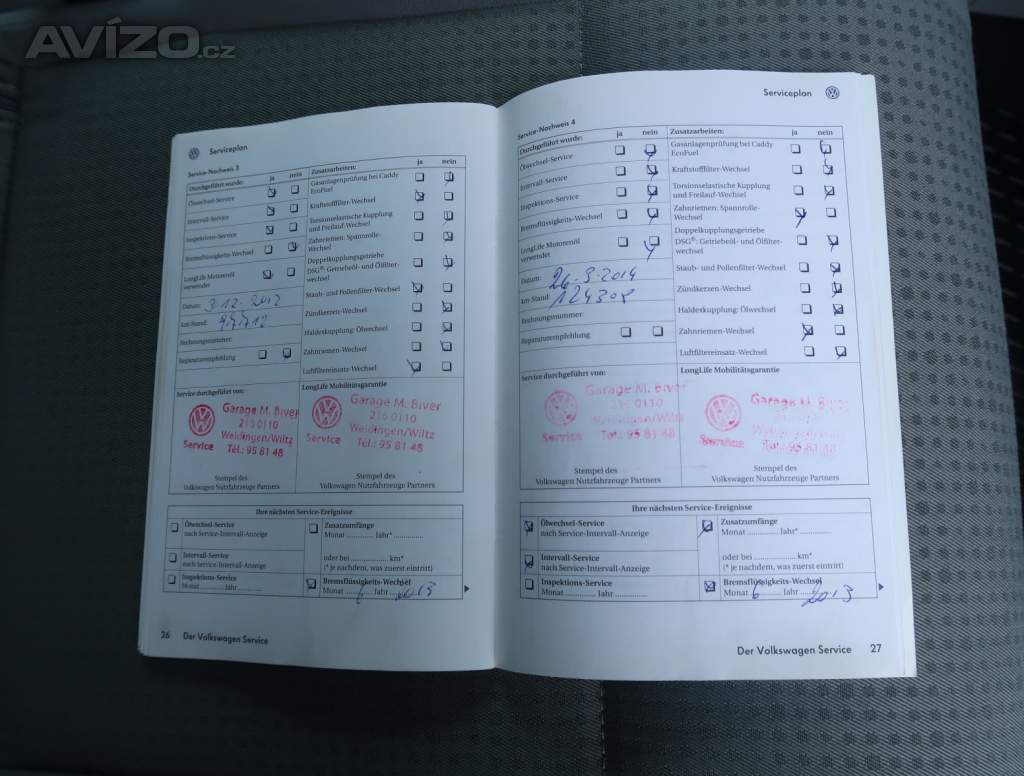 AVÍZO.cz
Serviceplan
Service-Nachweis 3
Durchgeführt wurde: ja nein
Ölwechsel-Service
Intervall-Service
Inspektions-Service
Bremsflüssigkeits-Wechsel
LongLife Motorenöl
verwendet
Datum: 3.12.2012
km-Stand:
Rechnungsnummer:
Reparaturempfehlung
Zusatzarbeiten: ja nein
Gasanlagenprüfung bei Caddy
EcoFuel
Kraftstofffilter-Wechsel
Torsionselastische Kupplung
und Freilauf-Wechsel
Zahnriemen: Spannrolle-
Wechsel
Doppelkupplungsgetriebe
DSG®: Getriebeöl- und Ölfilter-
wechsel
Staub- und Pollenfilter-Wechsel
Zündkerzen-Wechsel
Haldexkupplung: Ölwechsel
Zahnriemen-Wechsel
Luftfiltereinsatz-Wechsel
Service durchgeführt von:
Garage M. Biver
216 0110
Weidingen/Wiltz
Service Tél.: 95 81 48
Stempel des
Volkswagen Nutzfahrzeuge Partners
LongLife Mobilitätsgarantie
Garage M. Biver
216 0110
Weidingen/Wiltz
Service Tél.: 95 81 48
Stempel des
Volkswagen Nutzfahrzeuge Partners
Ihre nächsten Service-Ereignisse
Ölwechsel-Service
nach Service-Intervall-Anzeige
Intervall-Service
nach Service-Intervall-Anzeige
Inspektions-Service
Monat ............ Jahr ............
Zusatzumfänge
Monat ............ Jahr* ............
oder bei ............ km*
(* je nachdem, was zuerst eintritt)
Bremsflüssigkeits-Wechsel
Monat 6 Jahr 2013
26 Der Volkswagen Service
Serviceplan
Service-Nachweis 4
Durchgeführt wurde: ja nein
Ölwechsel-Service
Intervall-Service
Inspektions-Service
Bremsflüssigkeits-Wechsel
LongLife Motorenöl
verwendet
Datum: 26.3.2014
km-Stand: 124308
Rechnungsnummer:
Reparaturempfehlung
Zusatzarbeiten: ja nein
Gasanlagenprüfung bei Caddy
EcoFuel
Kraftstofffilter-Wechsel
Torsionselastische Kupplung
und Freilauf-Wechsel
Zahnriemen: Spannrolle-
Wechsel
Doppelkupplungsgetriebe
DSG®: Getriebeöl- und Ölfilter-
wechsel
Staub- und Pollenfilter-Wechsel
Zündkerzen-Wechsel
Haldexkupplung: Ölwechsel
Zahnriemen-Wechsel
Luftfiltereinsatz-Wechsel
Service durchgeführt von:
Garage M. Biver
216 0110
Weidingen/Wiltz
Service Tél.: 95 81 48
Stempel des
Volkswagen Nutzfahrzeuge Partners
LongLife Mobilitätsgarantie
Garage M. Biver
Service Tél.: 95 81 48
Stempel des
Volkswagen Nutzfahrzeuge Partners
Ihre nächsten Service-Ereignisse
Ölwechsel-Service
nach Service-Intervall-Anzeige
Intervall-Service
nach Service-Intervall-Anzeige
Inspektions-Service
Monat ............ Jahr ............
Zusatzumfänge
Monat ............ Jahr* ............
oder bei ............ km*
(* je nachdem, was zuerst eintritt)
Bremsflüssigkeits-Wechsel
Monat 6 Jahr 2013
Der Volkswagen Service 27